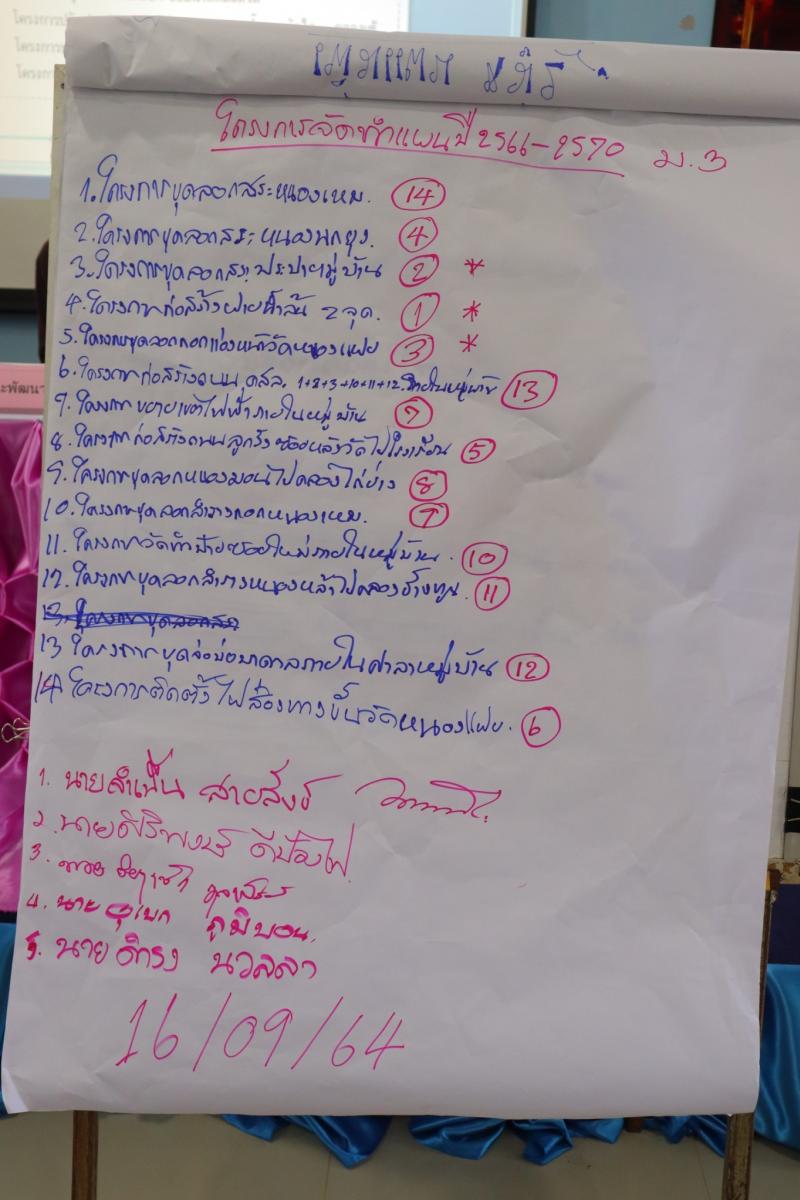 โครงการปรั
โครงการ
โครงก
โครงการจัดทำแผนปี 2566-2570 ม.3
1.โครงการขุดลอกสระหนองเหม. 14
2.โครงการขุดลอกสระหนองนกยูง. 4
3.โครงการขุดลอกสระประปาหมู่บ้าน 2 *
4.โครงการก่อสร้างฝายน้ำล้น 2 จุด. 1 *
5.โครงการขุดลอกคลองหน้าวัดหนองแฝย 3 *
6.โครงการก่อสร้างถนน คสล. 1+2+3+10+11+12.ภายในหมู่บ้าน 13
7.โครงการขยายเขตไฟฟ้าภายในหมู่บ้าน 7
8.โครงการก่อสร้างถนนลูกรังซอยหลังวัดไปโรงเรียน 5
9.โครงการขุดลอกหนองมอนไปคลองไก่ย่าง 8
10.โครงการขุดลอกลำรางหนองเหม. 9
11.โครงการจัดทำป้ายซอยใหม่ภายในหมู่บ้าน. 10
12.โครงการขุดลอกลำรางหนองหล้าไปคลองช้างทูน. 11
13 โครงการขุดเจาะบ่อบาดาลภายในศาลาหมู่บ้าน 12
14 โครงการติดตั้งไฟส่องทางขึ้นวัดหนองแฝย. 6
ะพัฒนา
1. นายสำเนิน สายสังข์
2. นายศิริพงษ์ ดีป้องไพ
3. นาย
4. นาย ภูมิบอน.
5. นายดำรง นวลลา
16/09/64